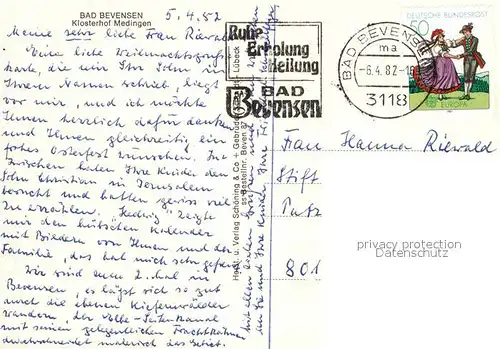 BAD BEVENSEN
Klosterhof Medingen
5.4.82
Meine sehr liebe Frau Riewald
Eine liebe Weihnachtsgruß-
karte, die mir Ihr Sohn in
Ihrem Namen schrieb, liegt
vor mir, und ich möchte
Ihnen herzlich dafür danken
und Ihnen gleichzeitig ein
frohes Osterfest wünschen. In-
zwischen haben Ihre Kinder den
Sohn Christian in Jerusalem
besucht und hatten gewiss viel
zu erzählen. Hedwig zeigte
mir den hübschen Kalender
mit Bildern von Ihnen und der
Familie, das hat mich sehr gefreut
Wir sind zum 2. mal in
Bevensen, es lässt sich so gut
durch die ebenen Kiefernwälder
wandern, der Elbe-Seitenkanal
mit seinen gelegentlichen Frachtkähnen
durchschneidet malerisch das Gebiet.
mit allen
an Sie und Ihre Kinder Ihre
Horst u. Verlag Schöning & Co + Gebrüder
Lübeck
Bestellnr. Beven 87
Ruhe
Erholung
Heilung
BAD
Bevensen
BAD BEVENSEN
ma
-6.4.82-18
3118
DEUTSCHE BUNDESPOST
50
EUROPA
Frau Hanna Riewald
Stift
801
privacy protection
Datenschutz